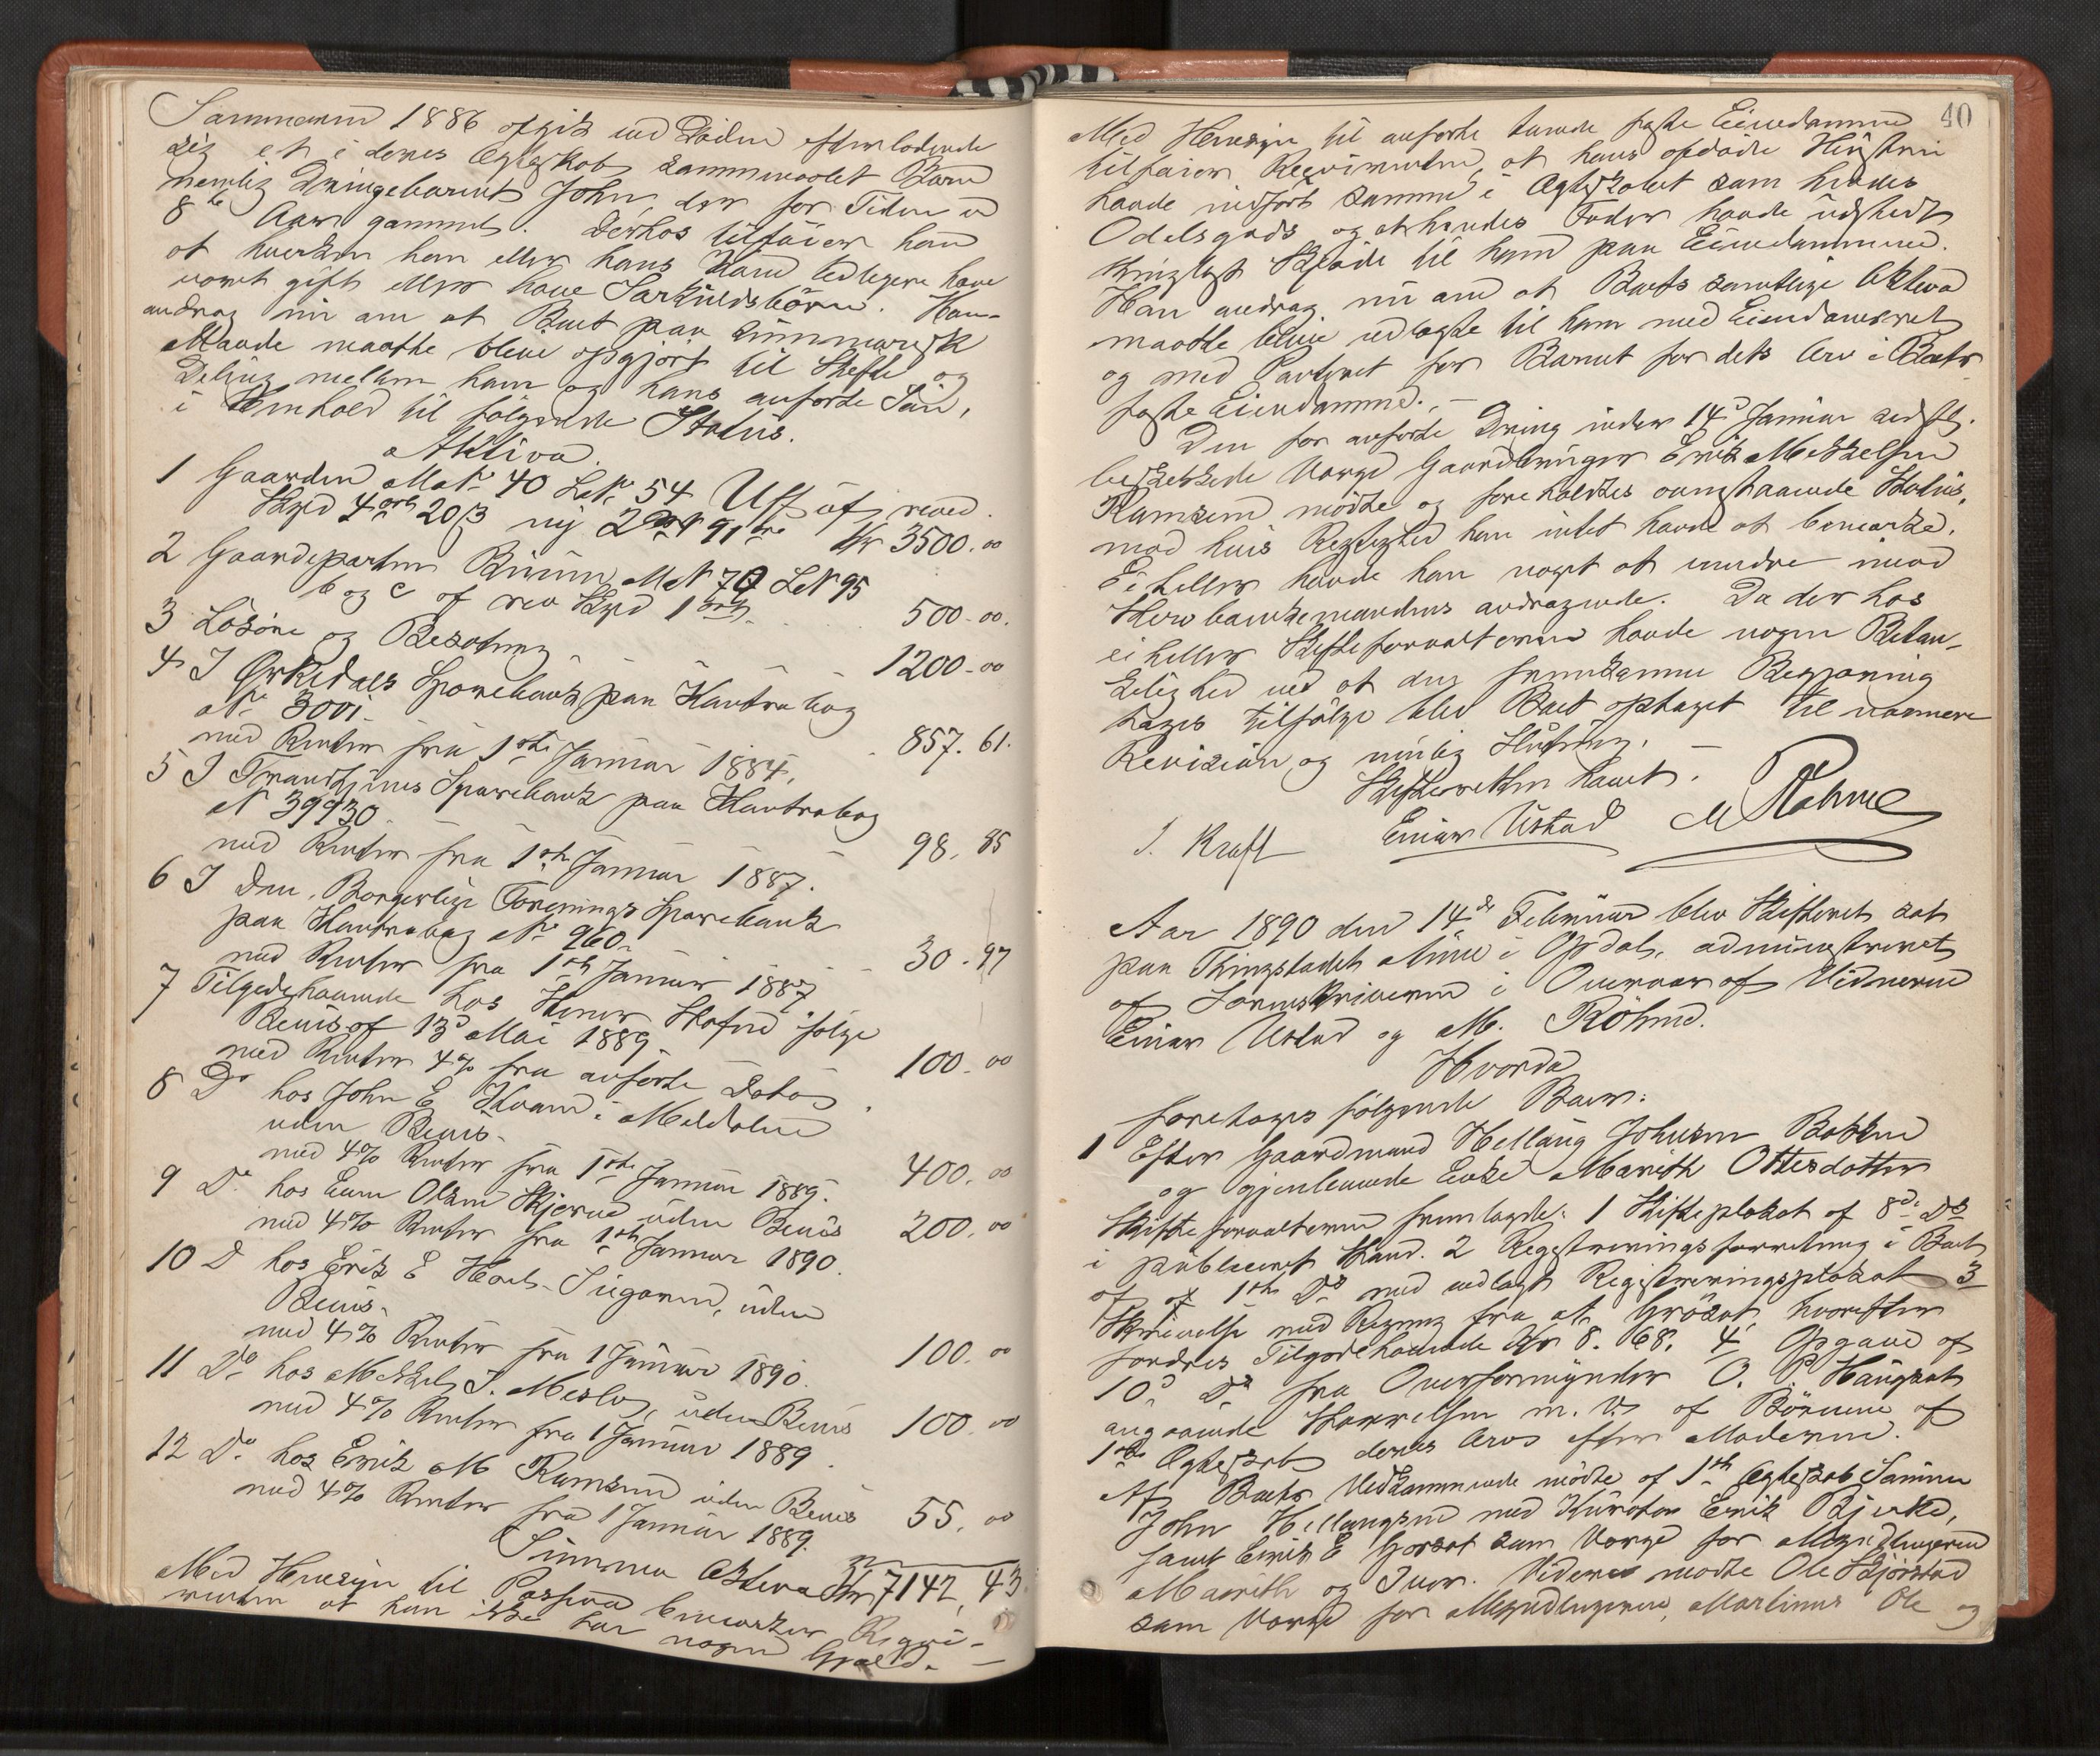 Sommeren 1886 afgik ved Døden efterladende
sig et i deres Ægteskab sammenavlet Barn
nemlig Drengebarnet John, der for Tiden er
8te Aar gammel. Derhos tilføier han
at hverken han eller hans Kone tidligere have
været gift eller have Særkuldsbørn. Han
androg nu om at Boet paa summarisk
Maade maatte blive opgjort til Skifte og
Deling mellem ham og hans anførte Søn,
i Henhold til følgende Status.
Aktiva.
1 Gaarden Mat No 40 LNo 54 af revid.
Skyld 4 ort 20 β ny 2 91 øre Kr 3500.00
2 Gaardeparten MNo 70 LNo 95
b og c af rev Skyld 1 ort 500-00.
3 Løsøre og Besætning 1200-00
4 I Ørkedals Sparebank paa Kontrabog
No 3001.
med Renter fra 1ste Januar 1884. 857.61.
5 I Trondhjems Sparebank paa Kontrabog
No 39930.
med Renter fra 1ste Januar 1887. 98.85
6 I Den Borgerlige Forenings Sparebank
paa Kontrabog No 960.
med Renter fra 1ste Januar 1887 30.97
7 Tilgodehavende hos ifølge
Bevis af 13d Mai 1889
med Renter 4% fra anførte Dato 100.00
8 Do hos John E i Meldalen
uden Bevis.
med 4% Renter fra 1ste Januar 1889. 400.00
9 Do hos Even Olsen Skjerve uden Bevis
med 4% Renter fra 1ste Januar 1890. 200.00
10 D hos Erik E uden
Bevis.
med 4% Renter fra 1 Januar 1890. 100.00
11 Do hos Mikkel J. Meslo, uden Bevis
med 4% Renter fra 1 Januar 1889. 100.00
12 Do hos Erik M Ramsem uden Bevis
med 4% Renter fra 1 Januar 1889. 55.00
Summa Aktiva Kr 7142,43.
Med Hensyn til Passiva bemærker Reqvi-
renten at han ikke har nogen Gjæld. —
40
Med Hensyn til anførte tvende faste Eiendomme
tilføier Reqvirenten, at hans afdøde Hustru
havde indført samme i Ægteskabet som hendes
Odelsgods og at hendes Fader havde udstedt
thinglæst Skjøde til ham paa Eiendommene.
Han androg nu om at Boets samtlige Aktiva
maatte blive udlagte til ham med Eiendomsret
og med Panteret for Barnet for dets Arv i Boets
faste Eiendomme. —
Den for anførte Dreng under 14d Januar sidstl.
beskikkede Værge Gaardbruger Erik Mikkelsen
Ramsem mødte og foreholdtes ovenstaaende Status,
mod hvis Rigtighed han intet havde at bemærke.
Ei heller havde han noget at erindre imod
Hr Enkemandens andragende. Da der hos
ei heller Skifteforvalteren havde nogen Betæn-
kelighed ved at den fremkomne Begjæring
tages tilfølge blev Boet optaget til nærmere
Revision og mulig Slutning. —
Skifteretten hævet.
J. Kraft Einar Ustad M Röhme
Aar 1890 den 14de Februar blev Skifteret sat
paa Thingstedet Aune i Opdal, administreret
af Sorenskriveren i Overvær af Vidnerne
Einar Ustad og M. Röhme.
Hvorda
foretoges følgende Boer:
1 Efter Gaardmand Hellaug Johnsen
og gjenlevende Enke Marith Ottesdatter
Skifteforvalteren fremlagde: 1 Skifteplakat af 8d. Ds
i publiceret Stand. 2 Registreringsforretning i Boet
af 1ste Ds med vedlagt Registreringsplakat 3
Skrivelse med Regning fra hvorefter
fordres Tilgodehavende Kr 8.68. 4 Opgave af
10d Ds fra Overformynder O. P. Haugset
angaaende m. V. af Børnene af
1ste Ægteskab deres Arv efter Moderen.
I Boets Vedkommende mødte af 1ste Ægteskab Sønnen
John Hellaugsen med Kurator Erik Bjerke,
samt Erik E som Værge for Myndlingerne
Marith og Iver. Videre mødte Ole Skjørstad
som Værge for Myndlingerne, Martinus Ole og